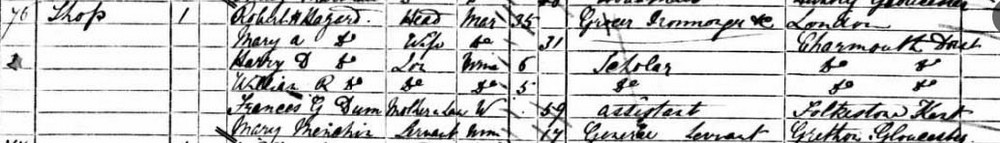 76 Shop 1 Robert H Hazard. Head Mar 35 Grocer Ironmonger &c London
Mary A Do Wife Do 31 Charmouth Dorst
Harry D Do Son Unm 6 Scholar Do Do
William R Do Do Do 5 Do Do Do
Frances G Dum Mother in Law W 59 assistant Folkestone Kent
Mary Servant Unm 17 General Servant Gretton Gloucester